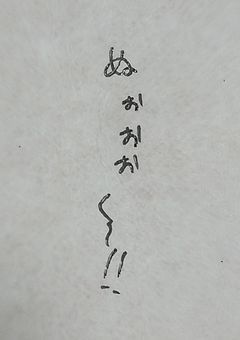 ぬぉぉぉ〜!!